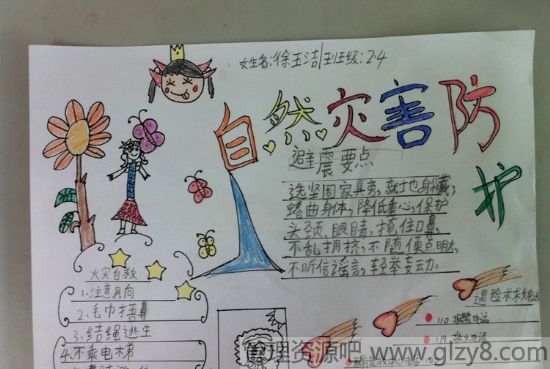 女生名:徐玉洁 班级:2.4
自然灾害防护
避震要点
选坚固家具旁,就地身藏,
蜷曲身体,降低重心,保护
头颈、眼睛,捂住口鼻,
不乱拥挤,不随便点明火,
不听信谣言,轻举妄动。
火灾自救
1.注意风向
2.毛巾捂鼻
3.结绳逃生
4.不乘电梯
遇险
110 报警电话
119
管理资源吧 www.glzy8.com